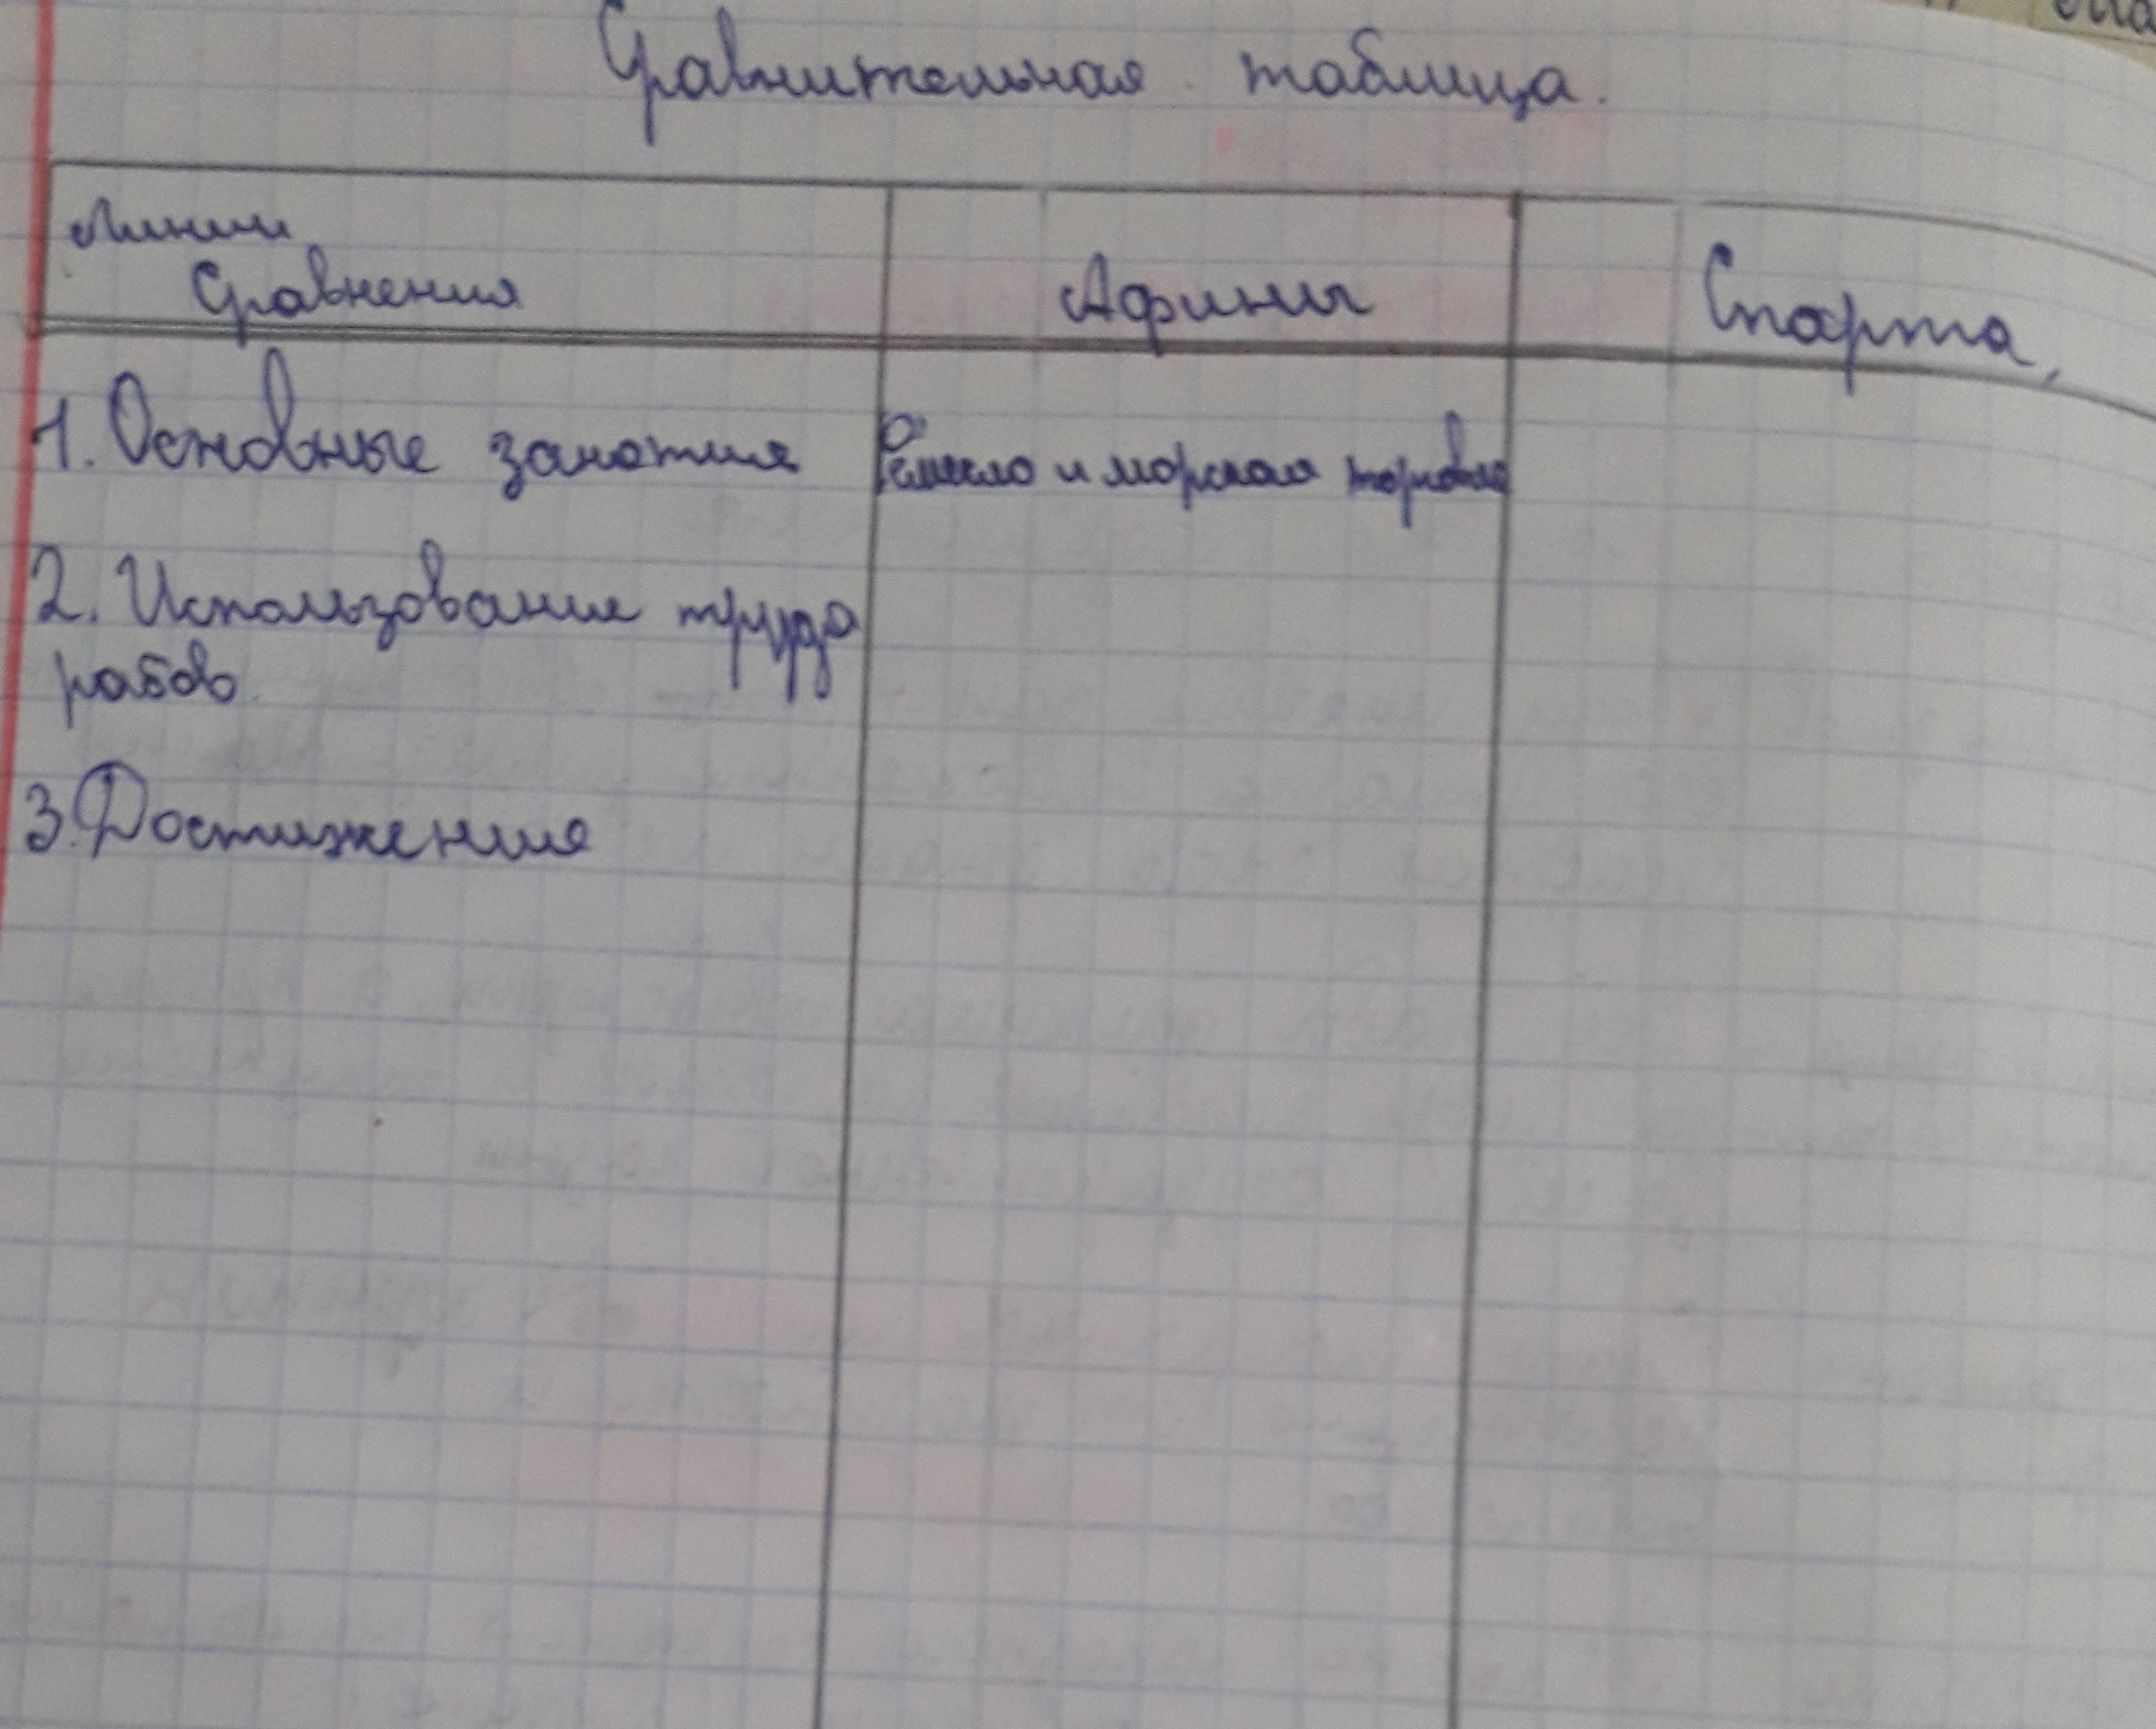 Сравнительная таблица.
Линии
Сравнения
Афины
Спарта
1. Основные занятия
Ремесло и морская торговля
2. Использование труда
рабов
3. Достижения